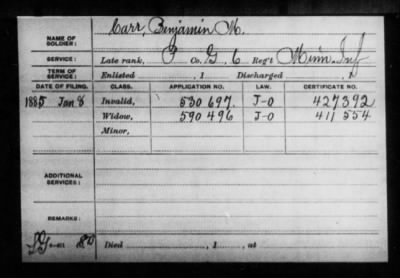 NAME OF SOLDIER: Carr, Benjamin M.
SERVICE: Late rank, P Co. G, 6 Reg't Minn. Inf
TERM OF SERVICE: Enlisted , 1 Discharged , 1
DATE OF FILING. CLASS. APPLICATION NO. LAW. CERTIFICATE NO.
1885 Jan 8 Invalid, 530 697. J-O 427392
Widow, 590 496 J-O 411 554
Minor,
ADDITIONAL SERVICES:
REMARKS:
Died , 1 , at